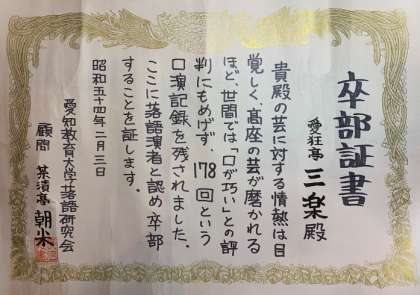 卒部証書
愛狂亭 三楽殿
貴殿の芸に対する情熱は目
覚しく、高座の芸が磨かれる
ほど、世間では「口が巧い」との評
判にもめげず、178回という
口演記録を残されました。
ここに落語演者と認め卒部
することを証します。
昭和五十四年二月三日
愛知教育大学落語研究会
顧問 茶漬亭 朝米